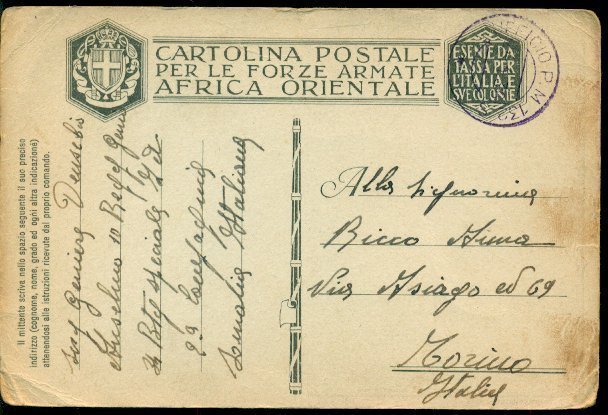 CARTOLINA POSTALE
PER LE FORZE ARMATE
AFRICA ORIENTALE
ESENTE DA
TASSA PER
L'ITALIA E
SVE COLONIE
UFFICIO P. M. 132
Il mittente scriva nello spazio seguente il suo preciso
indirizzo (cognome, nome, grado ed ogni altra indicazione)
attenendosi alle istruzioni ricevute dal proprio comando.
Anselmo
Speciale
2a Compagnia
Somalia Italiana
Alla Signorina
Ricco Anna
Via Asiago ed 69
Torino
Italia